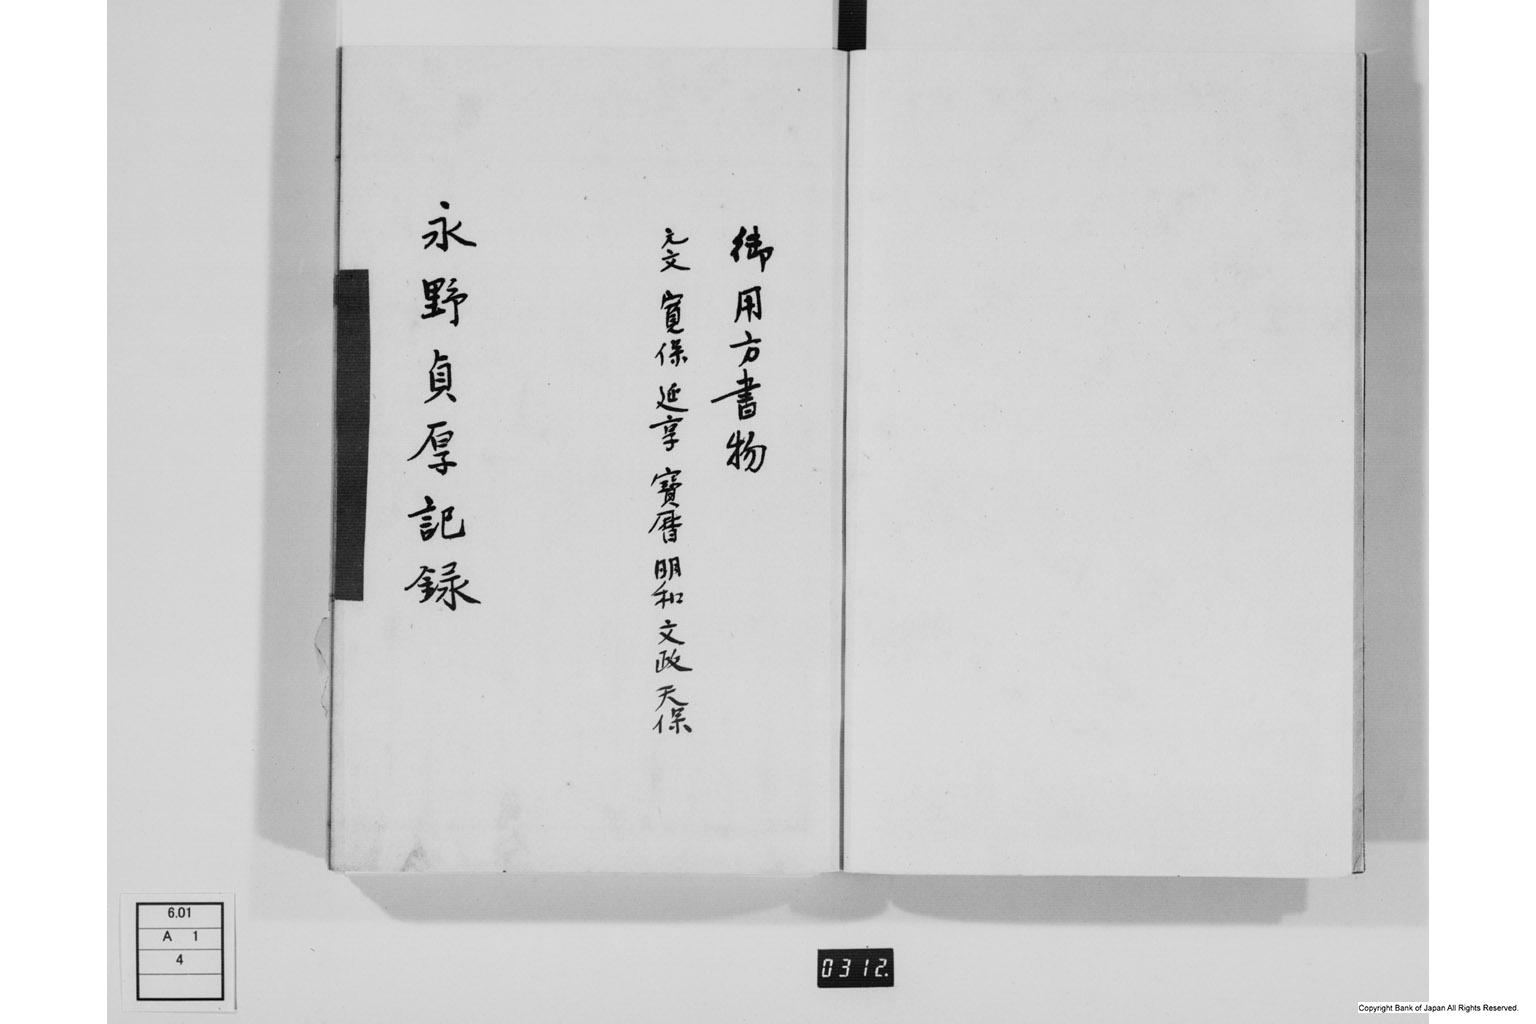 御用方書物
元文 寛保 延享 寳暦 明和 文政 天保
永野貞厚記録
6.01
A 1
4
0312.
Copyright Bank of Japan All Rights Reserved.